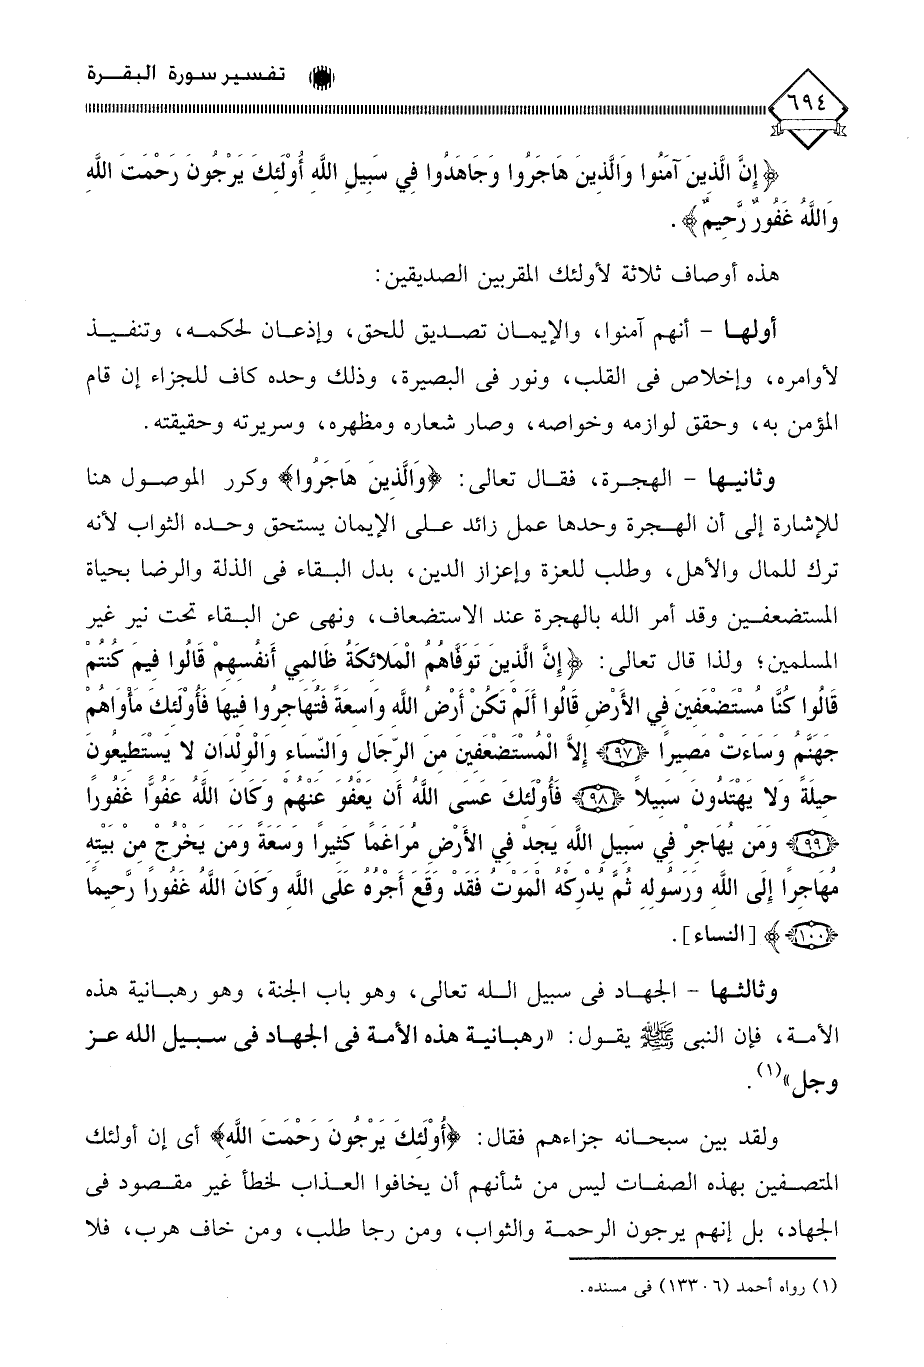 تفسير سورة البقرة
٦٩٤
﴿إِنَّ الَّذِينَ آمَنُوا وَالَّذِينَ هَاجَرُوا وَجَاهَدُوا فِي سَبِيلِ اللَّهِ أُوْلَئِكَ يَرْجُونَ رَحْمَتَ اللَّهِ
وَاللَّهُ غَفُورٌ رَّحِيمٌ﴾ .
هذه أوصاف ثلاثة لأولئك المقربين الصديقين:
أولها – أنهم آمنوا، والإيمان تصديق للحق، وإذعان لحكمه، وتنفيذ
لأوامره، وإخلاص فى القلب، ونور فى البصيرة، وذلك وحده كاف للجزاء إن قام
المؤمن به، وحقق لوازمه وخواصه، وصار شعاره ومظهره، وسريرته وحقيقته.
وثانيها – الهجرة، فقال تعالى: ﴿وَالَّذِينَ هَاجَرُوا﴾ وكرر الموصول هنا
للإشارة إلى أن الهجرة وحدها عمل زائد على الإيمان يستحق وحده الثواب لأنه
ترك للمال والأهل، وطلب للعزة وإعزاز الدين، بدل البقاء فى الذلة والرضا بحياة
المستضعفين وقد أمر الله بالهجرة عند الاستضعاف، ونهى عن البقاء تحت نير غير
المسلمين؛ ولذا قال تعالى: ﴿إِنَّ الَّذِينَ تَوَفَّاهُمُ الْمَلائِكَةُ ظَالِمِي أَنفُسِهِمْ قَالُوا فِيمَ كُنتُمْ
قَالُوا كُنَّا مُسْتَضْعَفِينَ فِي الأَرْضِ قَالُوا أَلَمْ تَكُنْ أَرْضُ اللَّهِ وَاسِعَةً فَتُهَاجِرُوا فِيهَا فَأُوْلَئِكَ مَأْوَاهُمْ
جَهَنَّمُ وَسَاءَتْ مَصِيرًا ﴿٩٧﴾ إِلاَّ الْمُسْتَضْعَفِينَ مِنَ الرِّجَالِ وَالنِّسَاءِ وَالْوِلْدَانِ لا يَسْتَطِيعُونَ
حِيلَةً وَلا يَهْتَدُونَ سَبِيلاً ﴿٩٨﴾ فَأُوْلَئِكَ عَسَى اللَّهُ أَن يَعْفُوَ عَنْهُمْ وَكَانَ اللَّهُ عَفُوًّا غَفُورًا
﴿٩٩﴾ وَمَن يُهَاجِرْ فِي سَبِيلِ اللَّهِ يَجِدْ فِي الأَرْضِ مُرَاغَمًا كَثِيرًا وَسَعَةً وَمَن يَخْرُجْ مِنْ بَيْتِهِ
مُهَاجِرًا إِلَى اللَّهِ وَرَسُولِهِ ثُمَّ يُدْرِكْهُ الْمَوْتُ فَقَدْ وَقَعَ أَجْرُهُ عَلَى اللَّهِ وَكَانَ اللَّهُ غَفُورًا رَّحِيمًا
﴿١٠٠﴾﴾ [النساء].
وثالثها – الجهاد فى سبيل الله تعالى، وهو باب الجنة، وهو رهبانية هذه
الأمة، فإن النبى ﷺ يقول: «رهبانية هذه الأمة فى الجهاد فى سبيل الله عز
وجل»(١).
ولقد بين سبحانه جزاءهم فقال: ﴿أُوْلَئِكَ يَرْجُونَ رَحْمَتَ اللَّهِ﴾ أى إن أولئك
المتصفين بهذه الصفات ليس من شأنهم أن يخافوا العذاب لخطأ غير مقصود فى
الجهاد، بل إنهم يرجون الرحمة والثواب، ومن رجا طلب، ومن خاف هرب، فلا
(١) رواه أحمد (١٣٣٠٦) فى مسنده.